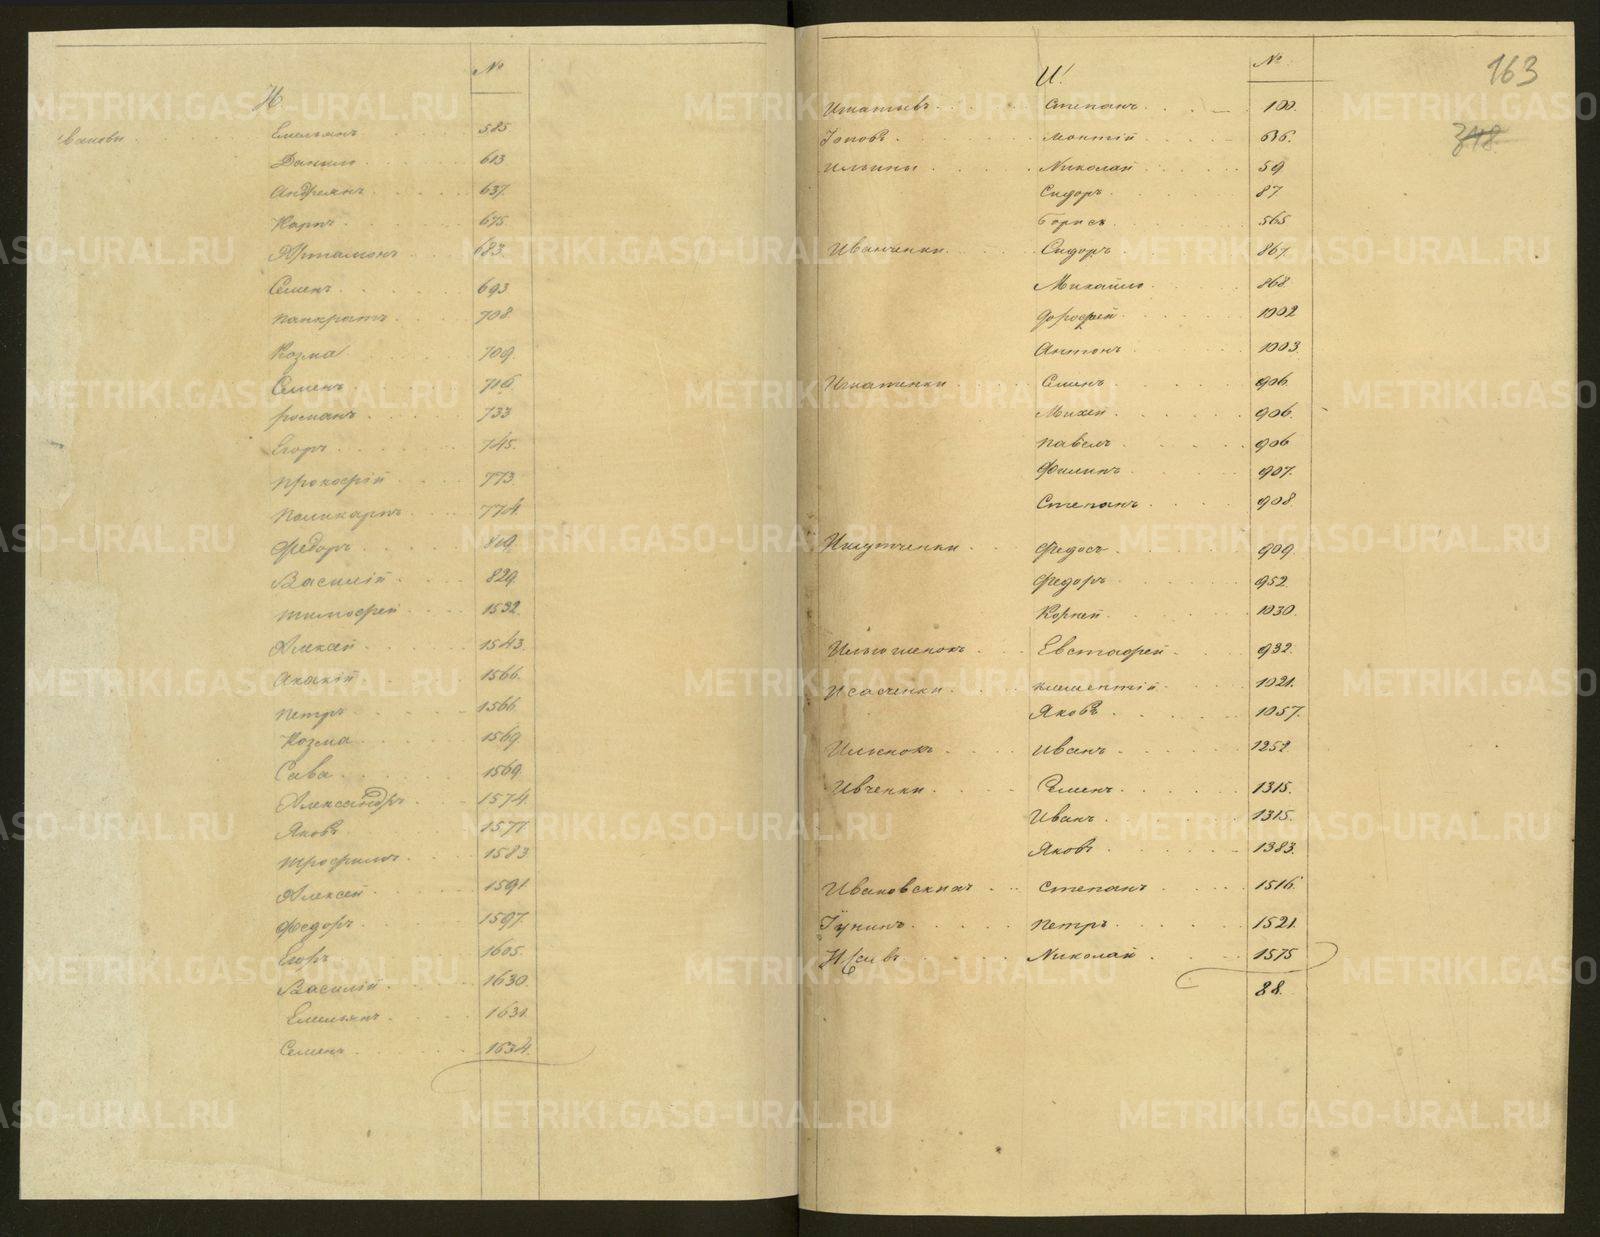 И
№
Ивановы Емельянъ 585.
Данило 613
Андреянъ 637.
Карпъ 675.
Артамонъ 683.
Семенъ 693
Панкратъ 708.
Козма 709.
Семенъ 716.
Романъ 733
Егоръ 745.
Прокофій 773.
Поликарпъ 774.
Федоръ 819.
Василій 829.
Тимофей 1532.
Алексей 1543.
Акакій 1566.
Петръ 1566.
Козма 1569.
Сава 1569.
Александръ 1574.
Яковъ 1577.
Трофимъ 1583.
Алексей 1591.
Федоръ 1597.
Егоръ 1605.
Василій 1630.
Емельянъ 1631.
Семенъ 1634.
163
318
И.
№
Игнатьевъ Степанъ 100.
Іоновъ 636.
Ильины Николай 59
Сидоръ 87
Борисъ 565
Иванченки Сидоръ 867.
Михайло 868.
Дорофей 1002
Антонъ 1003.
Игнатенки Семенъ 906.
Михей 906.
Павелъ 906
Филипъ 907.
Степанъ 908
Федосъ 909.
Федоръ 952.
Корней 1030.
Ильюшенокъ Евстафей 932.
Исаченки Климентій 1021.
Яковъ 1057.
Иванъ 1252.
Ивченки Семенъ 1315.
Иванъ 1315.
Яковъ 1383.
Ивановскихъ Степанъ 1516.
Іунинъ Петръ 1521.
Николай 1575
88.
METRIKI.GASO-URAL.RU